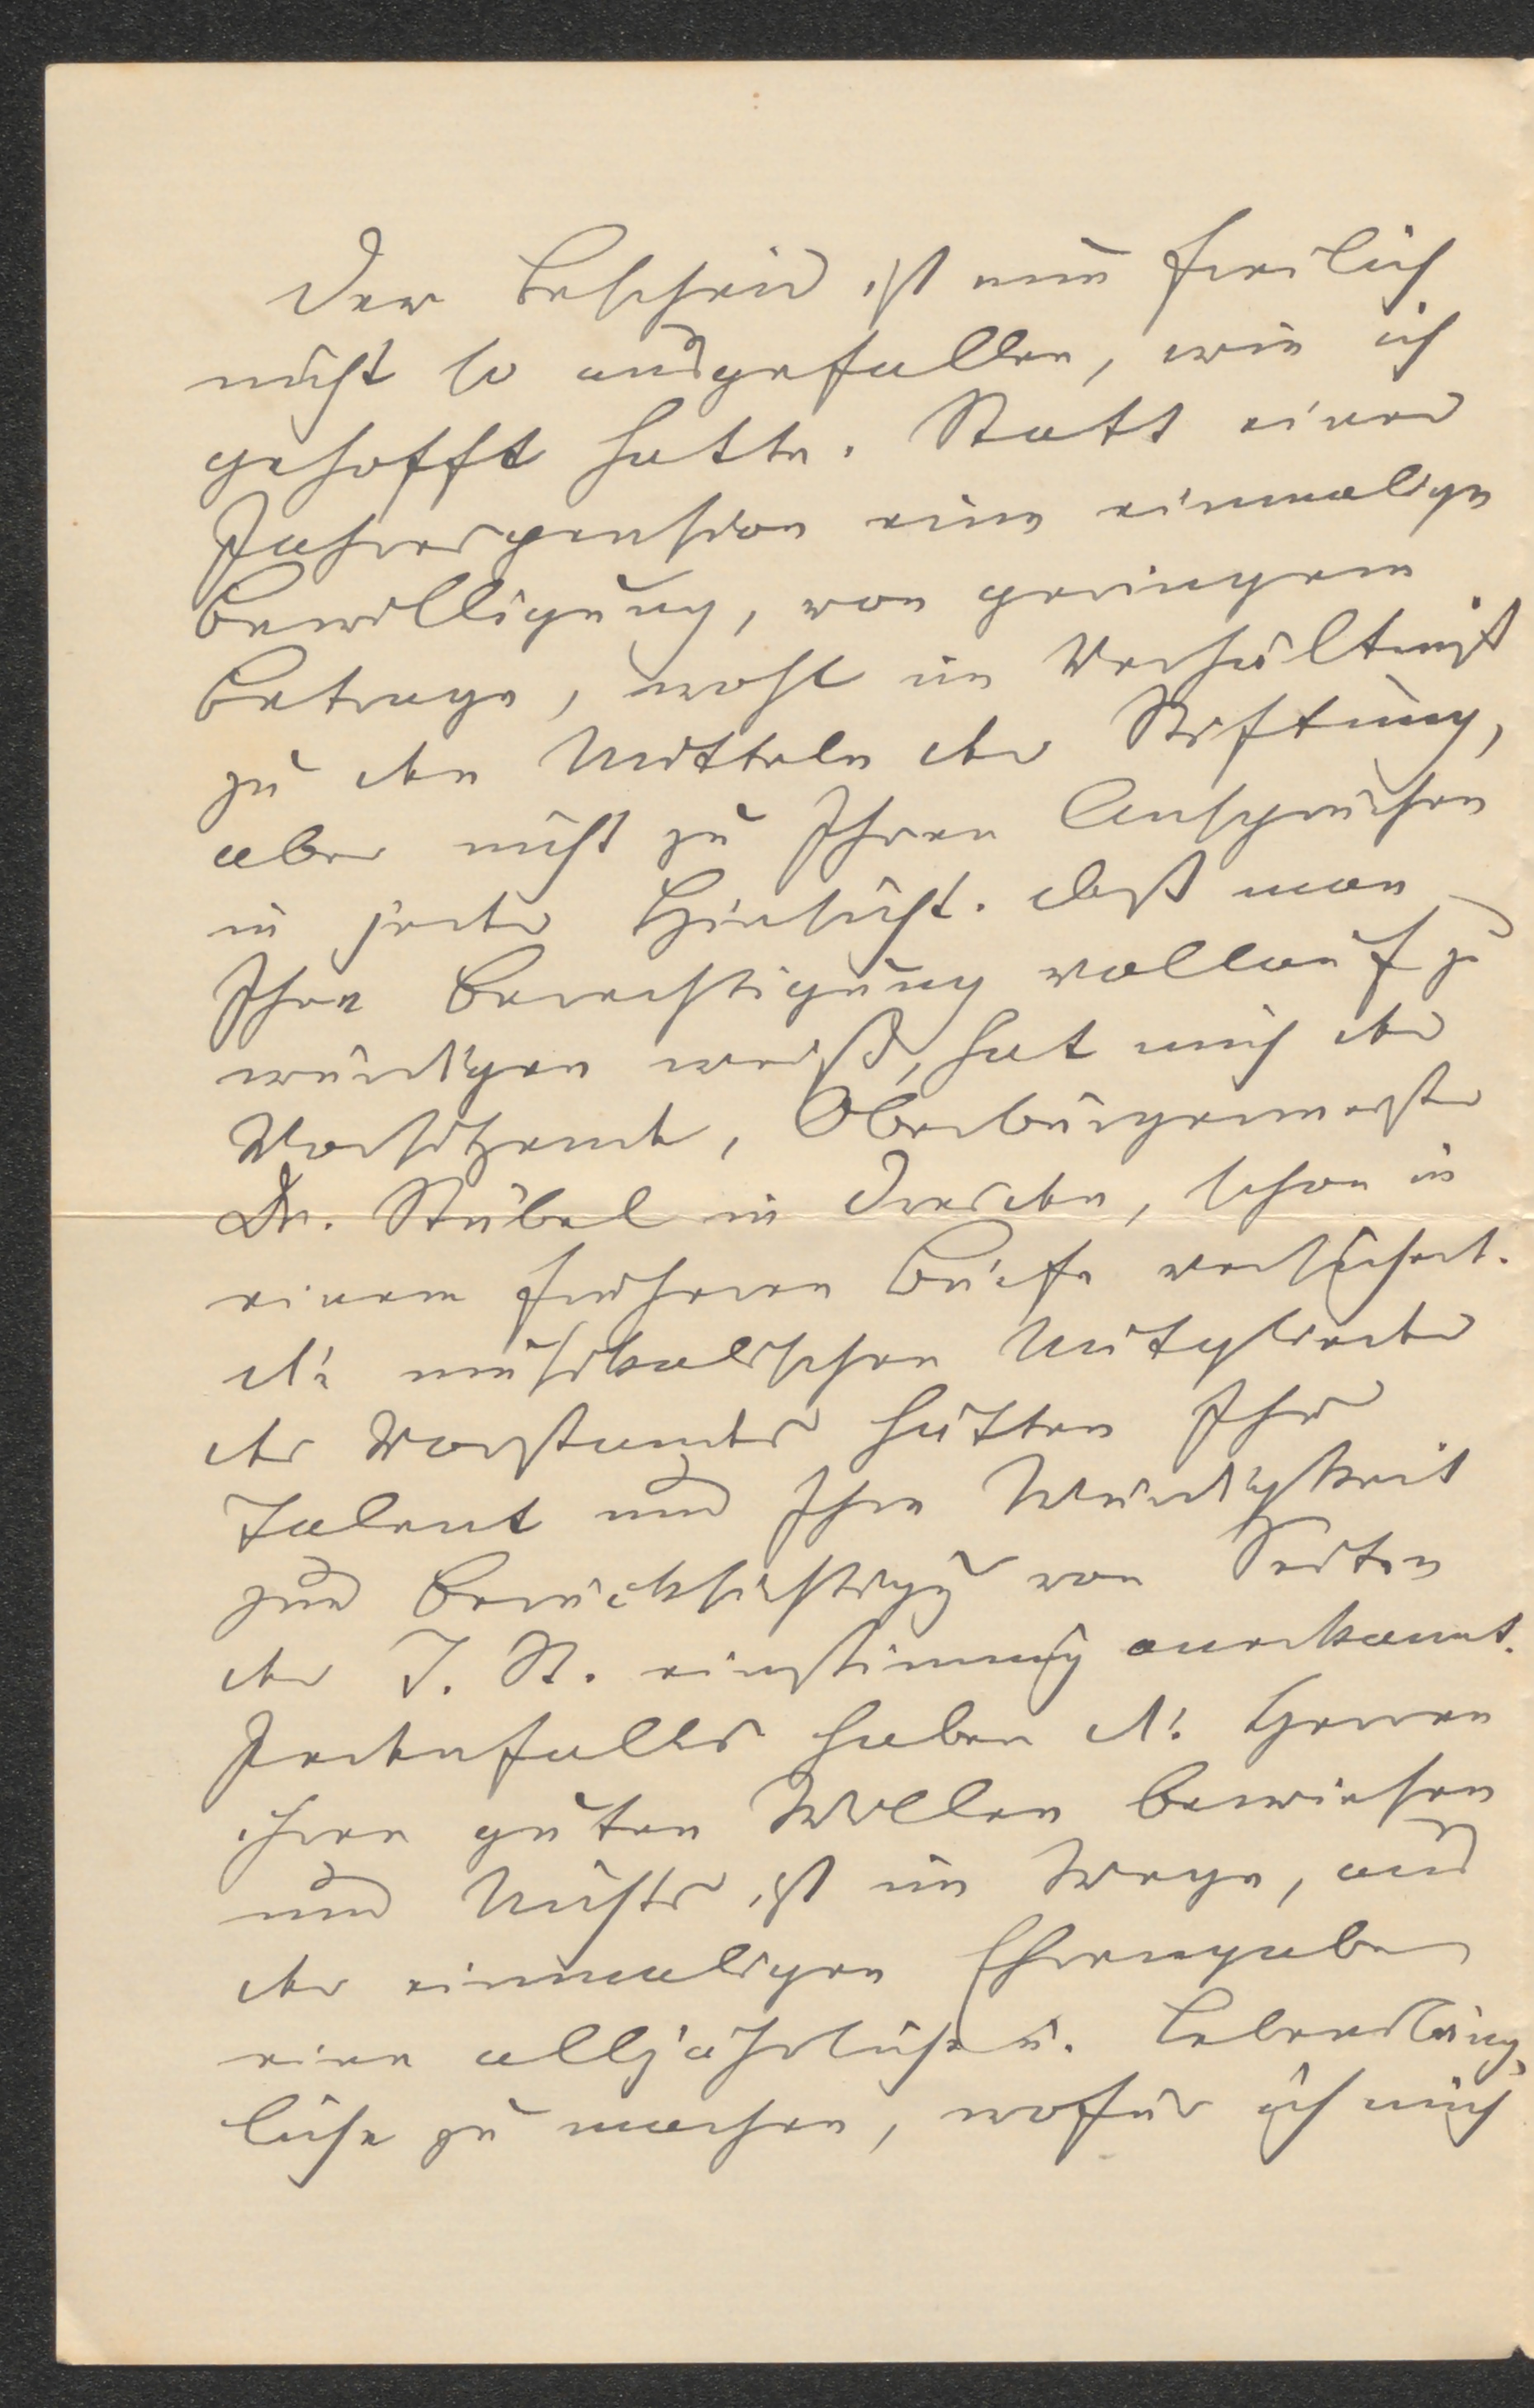 Der Bescheid ist nun freilich
nicht so ausgefallen, wie ich
gehofft hatte. Statt einer
Jahrespension eine einmalige
Bewilligung, von geringem
Betrage, wohl im Verhältniß
zu den Mitteln der Stiftung,
aber nicht zu Ihren Ansprüchen
in jeder Hinsicht. Daß man
Ihre Berechtigung vollauf zu
würdigen weiß, hat mich der
Vorsitzende, Oberbürgermeister
Dr. Stübel in Dresden, schon in
einem früheren Briefe versichert.
Die musikalischen Mitglieder
des Vorstandes hätten Ihr
Talent und Ihre Würdigkeit
zur Berücksichtigg von Seiten
der T. St. einstimmig anerkannt.
Jedenfalls haben die Herren
ihren guten Willen bewiesen
und Nichts ist im Wege, aus
der einmaligen Ehrengabe
eine alljährliche u. lebensläng-
liche zu machen, wofür ich mich